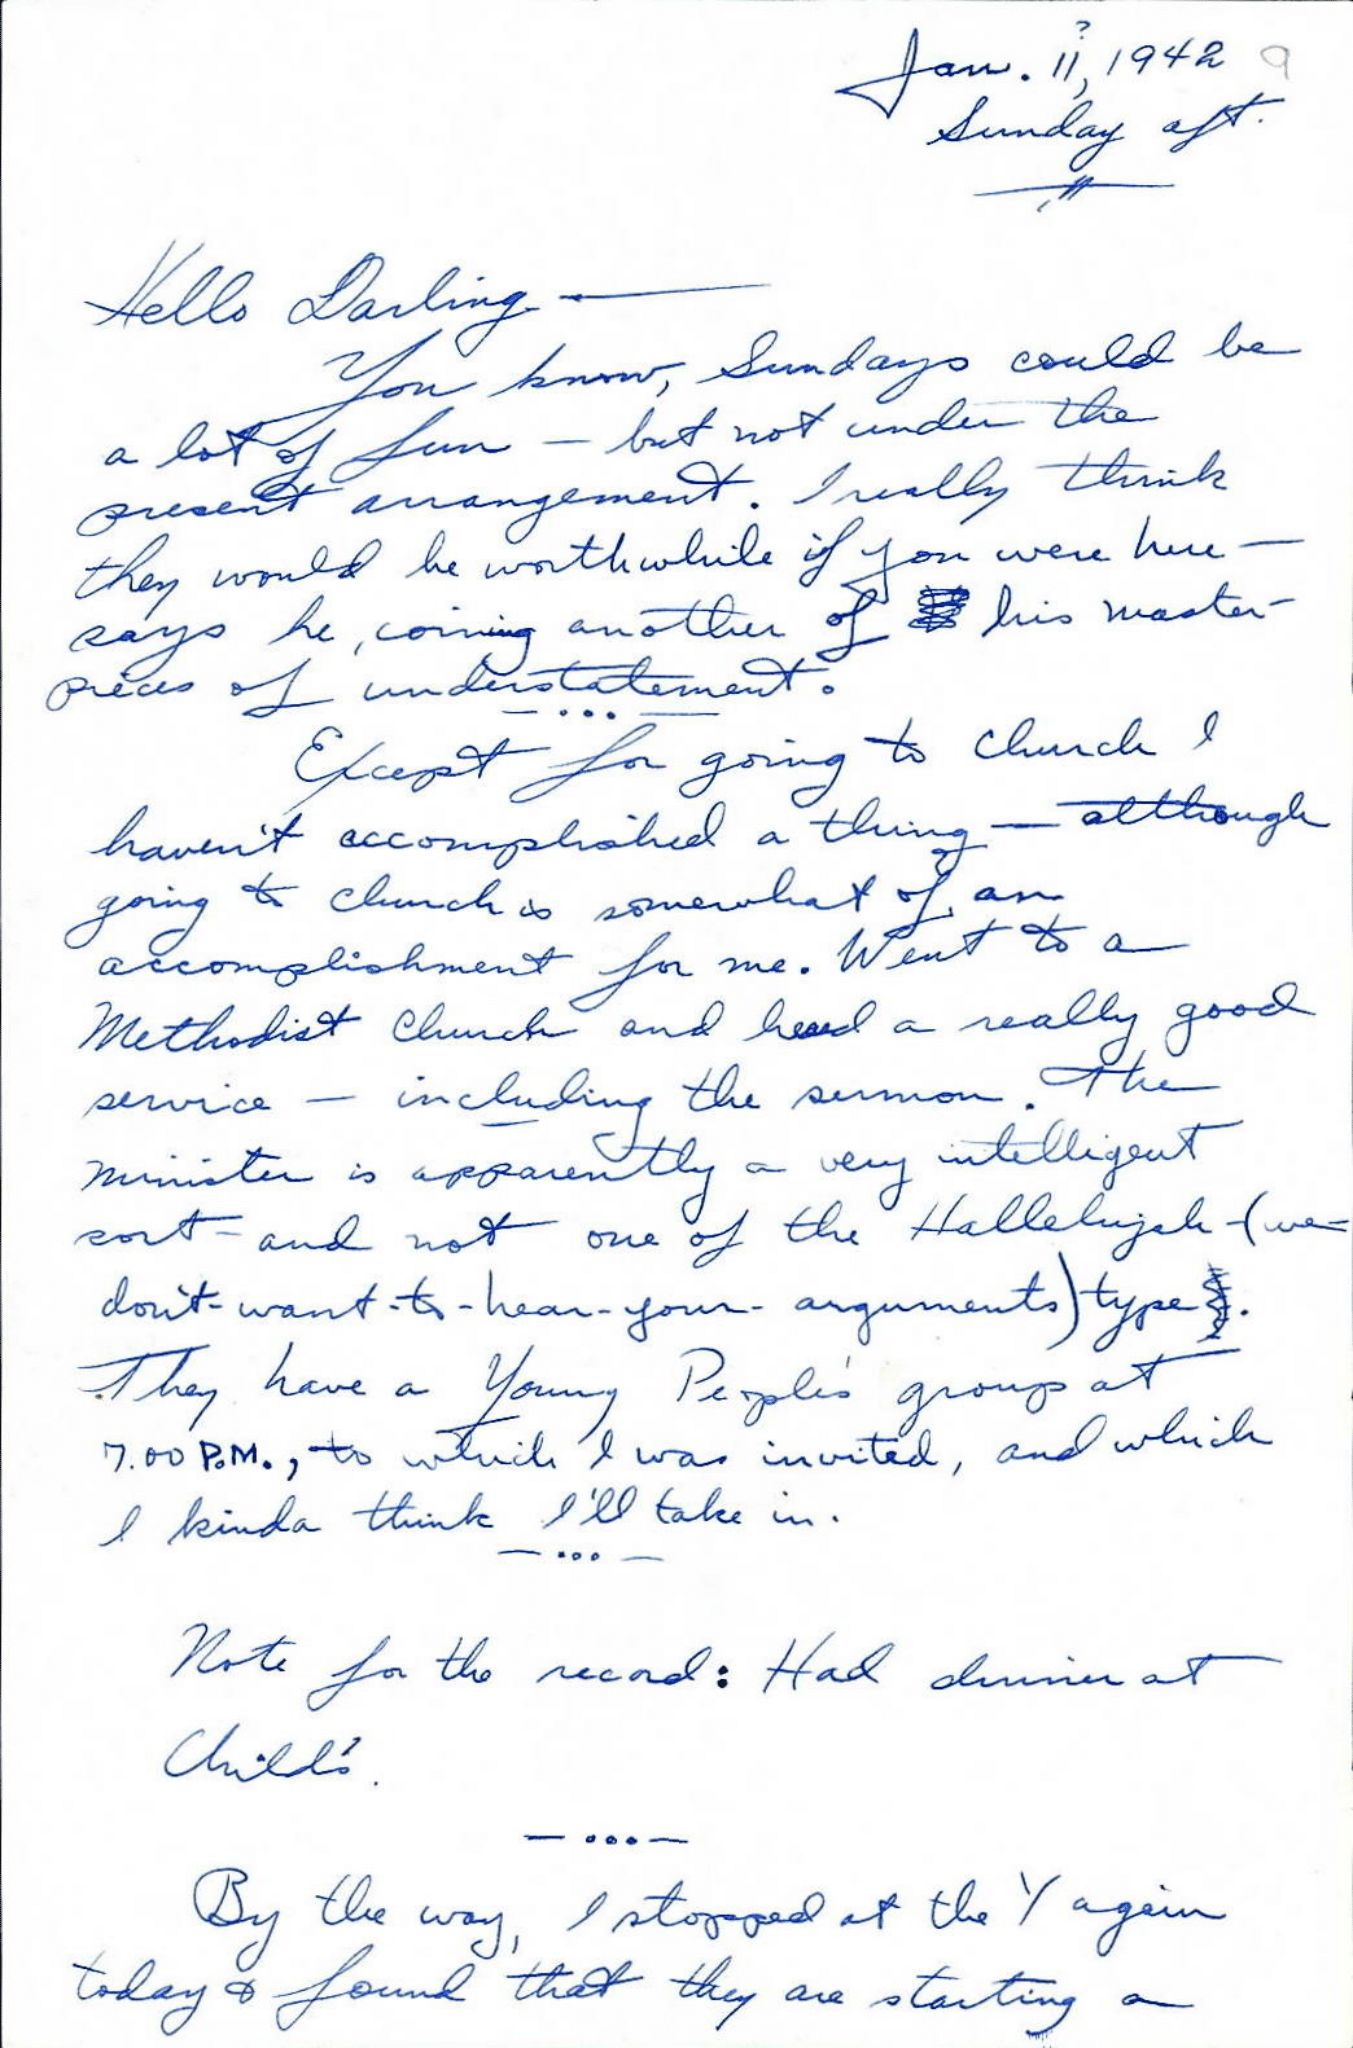 ?
Jan. 11, 1942 9
Sunday aft.
Hello Darling —
You know, Sundays could be
a lot of fun — but not under the
present arrangement. I really think
they would be worthwhile if you were here —
says he, coining another of his master-
pieces of understatement.
— ... —
Except for going to church I
haven't accomplished a thing — although
going to church is somewhat of an
accomplishment for me. Went to a
Methodist Church and heard a really good
service — including the sermon. The
minister is apparently a very intelligent
sort - and not one of the Hallelujah - (we-
don't-want-to-hear-your-arguments) type.
They have a Young People's group at
7.00 P.M., to which I was invited, and which
I kinda think I'll take in.
— ... —
Note for the record: Had dinner at
Child's.
— ... —
By the way, I stopped at the Y again
today & found that they are starting a